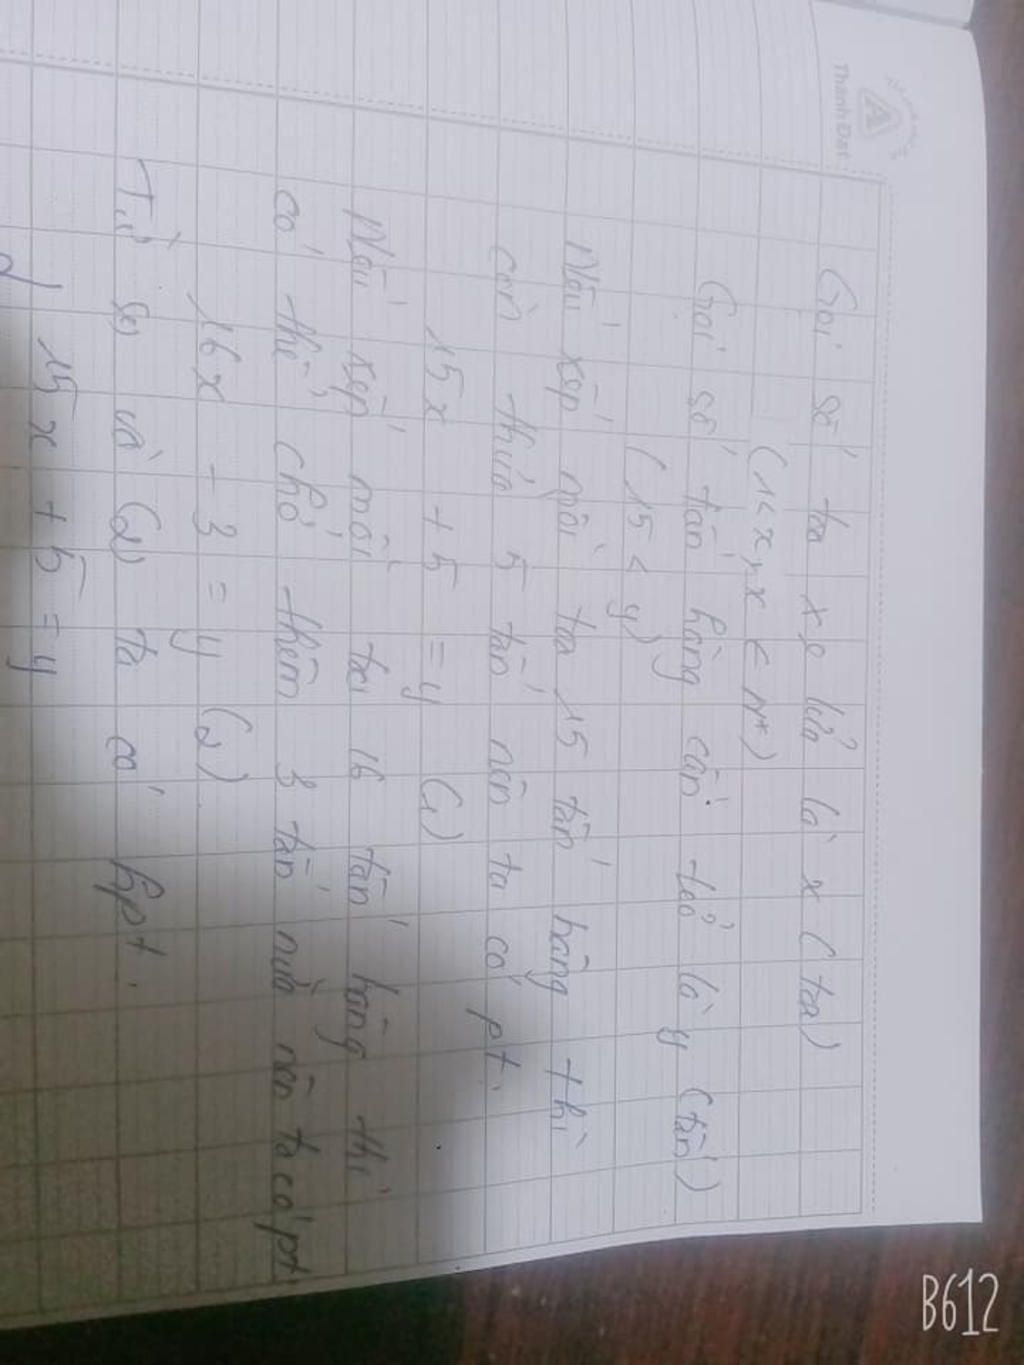 Thành Đạt
Gọi số toa xe lửa là x (toa)
(1 < x, x ∈ N*)
Gọi số tấn hàng cần chở là y (tấn)
(15 < y)
Nếu xếp mỗi toa 15 tấn hàng thì
còn thừa 5 tấn nên ta có pt:
15x + 5 = y (1)
Nếu xếp mỗi toa 16 tấn hàng thì
có thể chở thêm 3 tấn nữa nên ta có pt
16x - 3 = y (2)
Từ (1) và (2) ta có hpt:
15x + 5 = y
B612